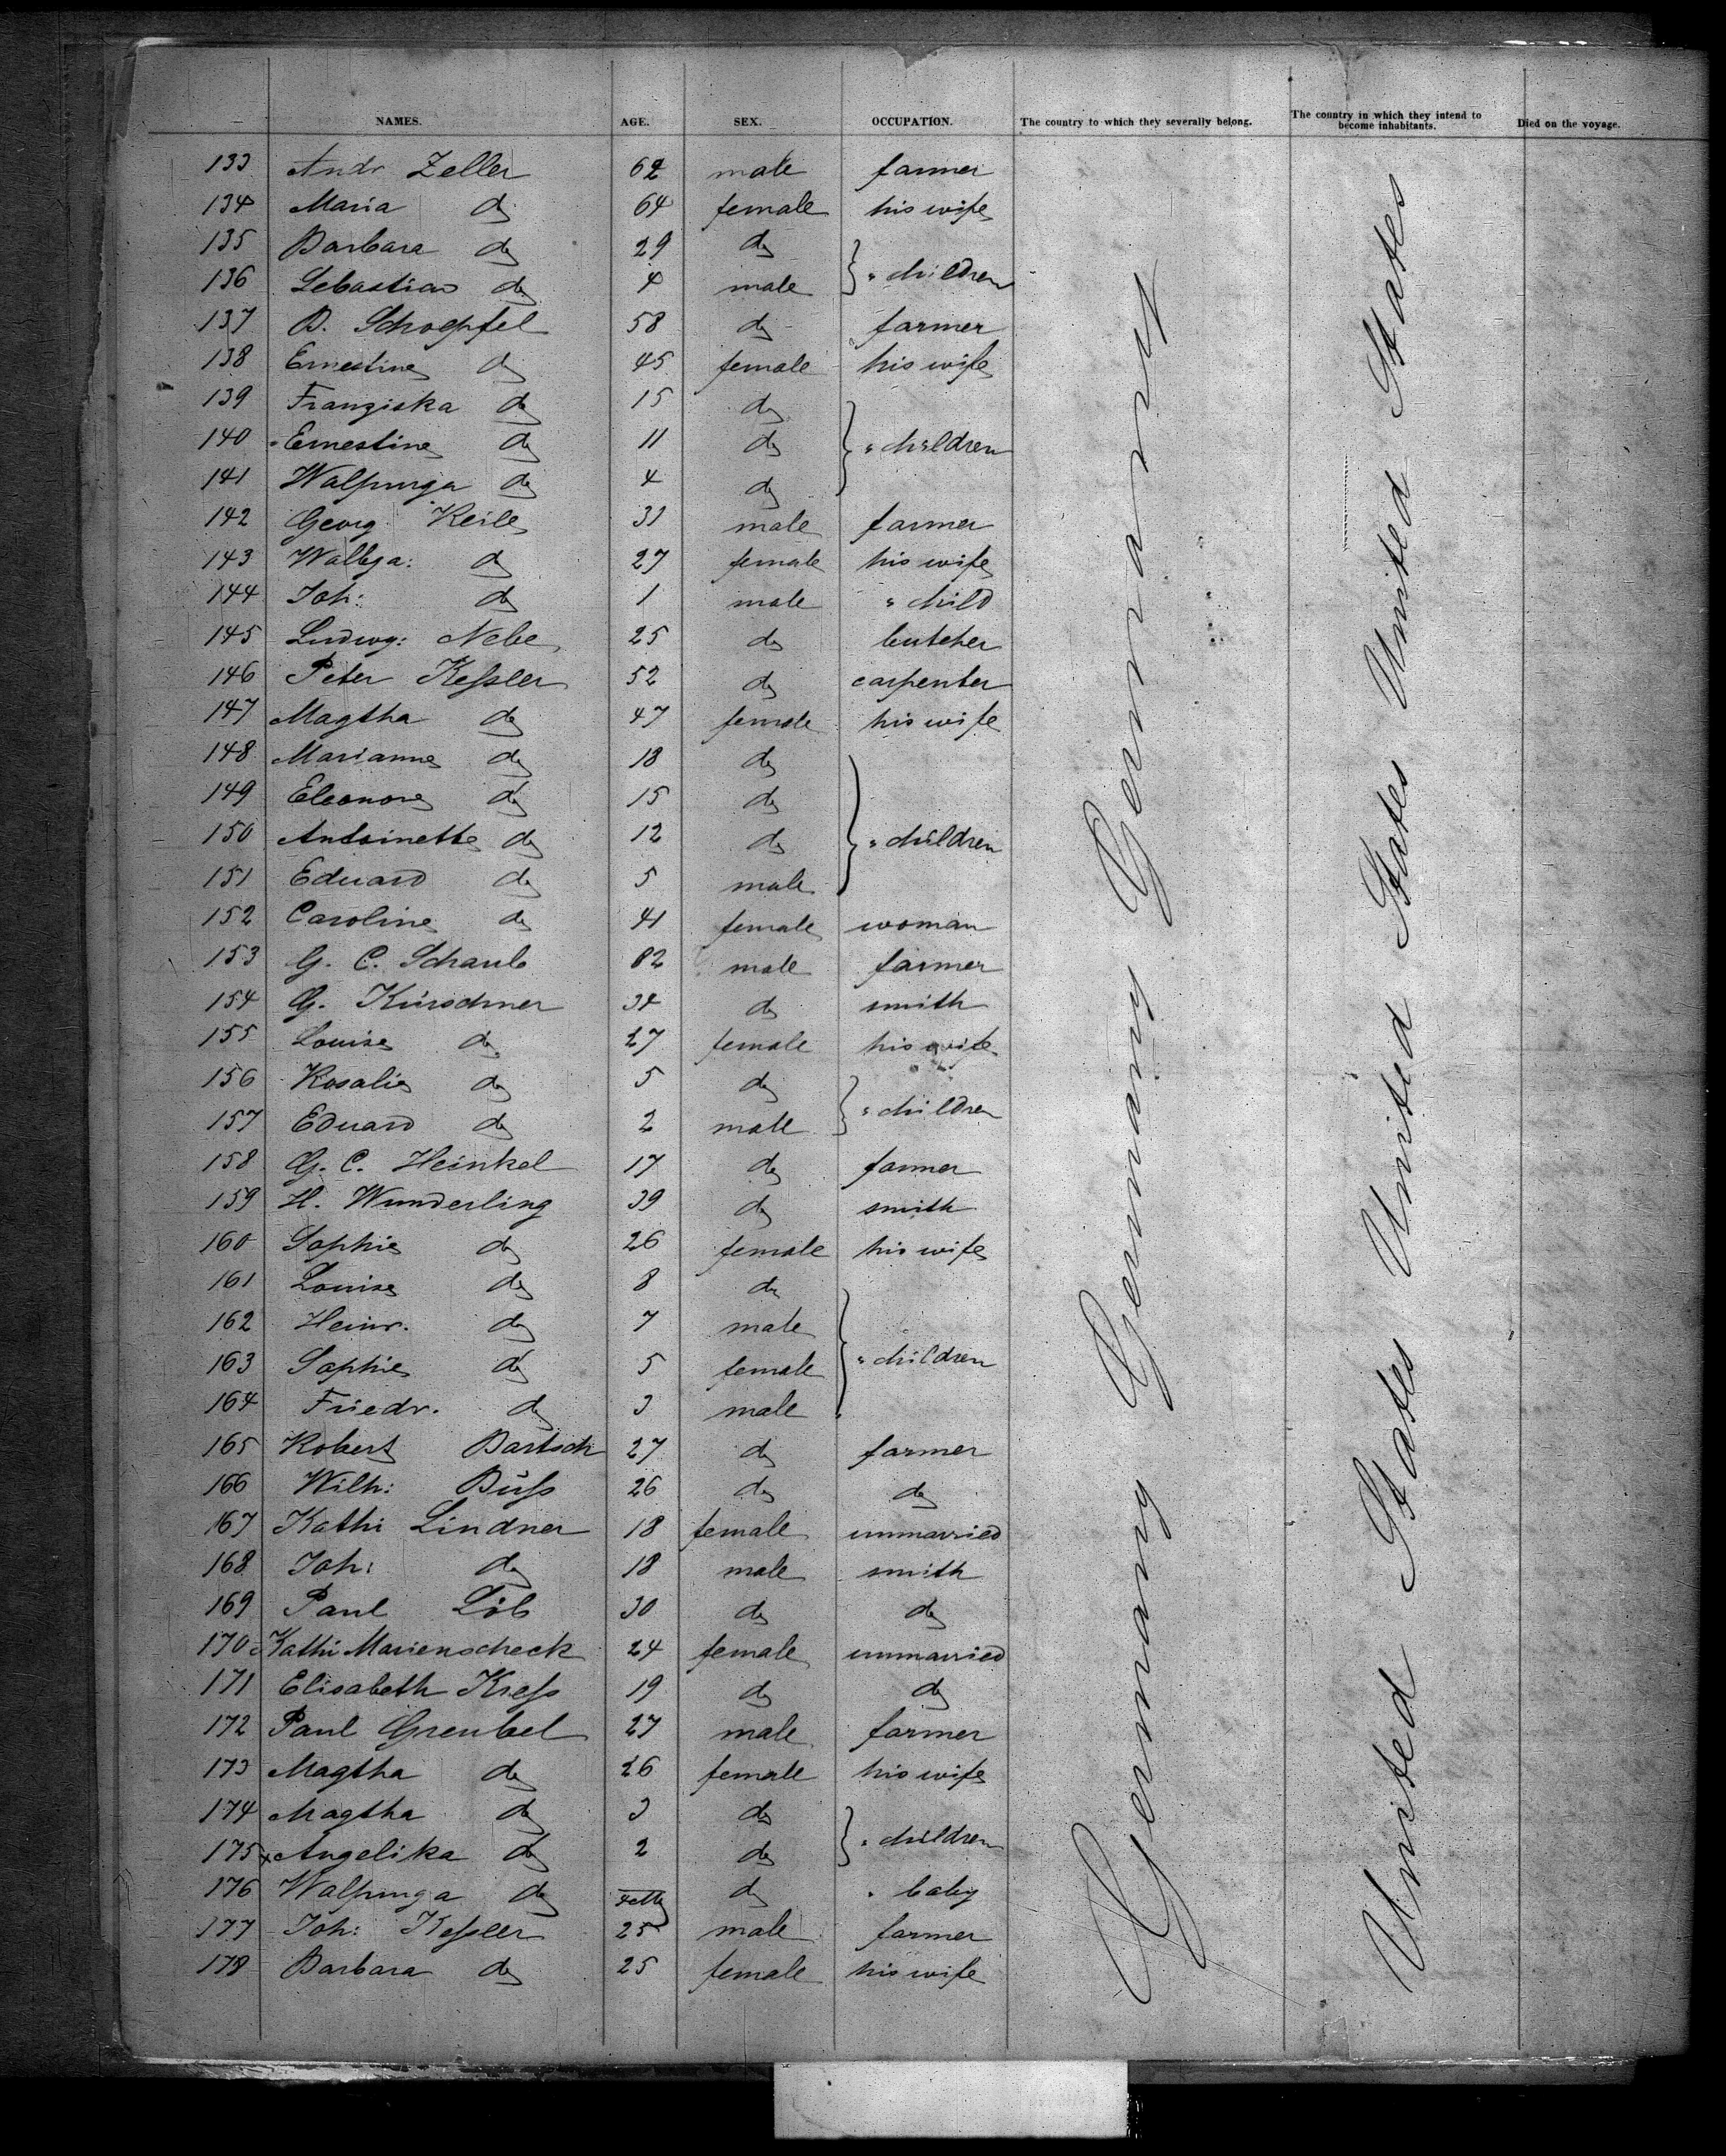 NAMES. AGE. SEX. OCCUPATION. The country to which they severally belong. The country in which they intend to become inhabitants. Died on the voyage.
133 Andr Zeller 62 male farmer
134 Maria do 64 female his wife
135 Barbara do 29 do
136 Sebastian do 4 male } " children
137 B. Schoepfel 58 do farmer
138 Ernestine do 45 female his wife
139 Franziska do 15 do
140 Ernestine do 11 do } " children
141 Walpurga do 4 do
142 Georg Keile 33 male farmer
143 Walbga: do 27 female his wife
144 Joh: do 1 male " child
145 Ludwg: Nebe 25 do butcher
146 Peter Keſsler 52 do carpenter
147 Magtha do 47 female his wife
148 Marianne do 18 do
149 Eleonore do 15 do
150 Antoinette do 12 do } " children
151 Eduard do 5 male
152 Caroline do 41 female woman
153 G. C. Schaub 82 male farmer
154 G. Kürschner 34 do smith
155 Louise do 27 female his wife
156 Rosalie do 5 do
157 Eduard do 2 male } " children
158 G. C. Heinkel 17 do farmer
159 H. Wunderling 39 do smith
160 Sophie do 26 female his wife
161 Louise do 8 do
162 Heinr. do 7 male
163 Sophie do 5 female } " children
164 Friedr. do 3 male
165 Robert Bartsch 27 do farmer
166 Wilh: Büſs 26 do do
167 Kathi Lindner 18 female unmarried
168 Joh: do 18 male smith
169 Paul Löb 30 do do
170 Kathi Marienscheck 24 female unmarried
171 Elisabeth Kreſs 19 do do
172 Paul Greubel 27 male farmer
173 Magtha do 26 female his wife
174 Magtha do 3 do
175 x Angelika do 2 do } " children
176 Walpurga do do " baby
177 Joh: Keſsler 25 male farmer
178 Barbara do 25 female his wife
Germany Germany Germany
United States United States United States